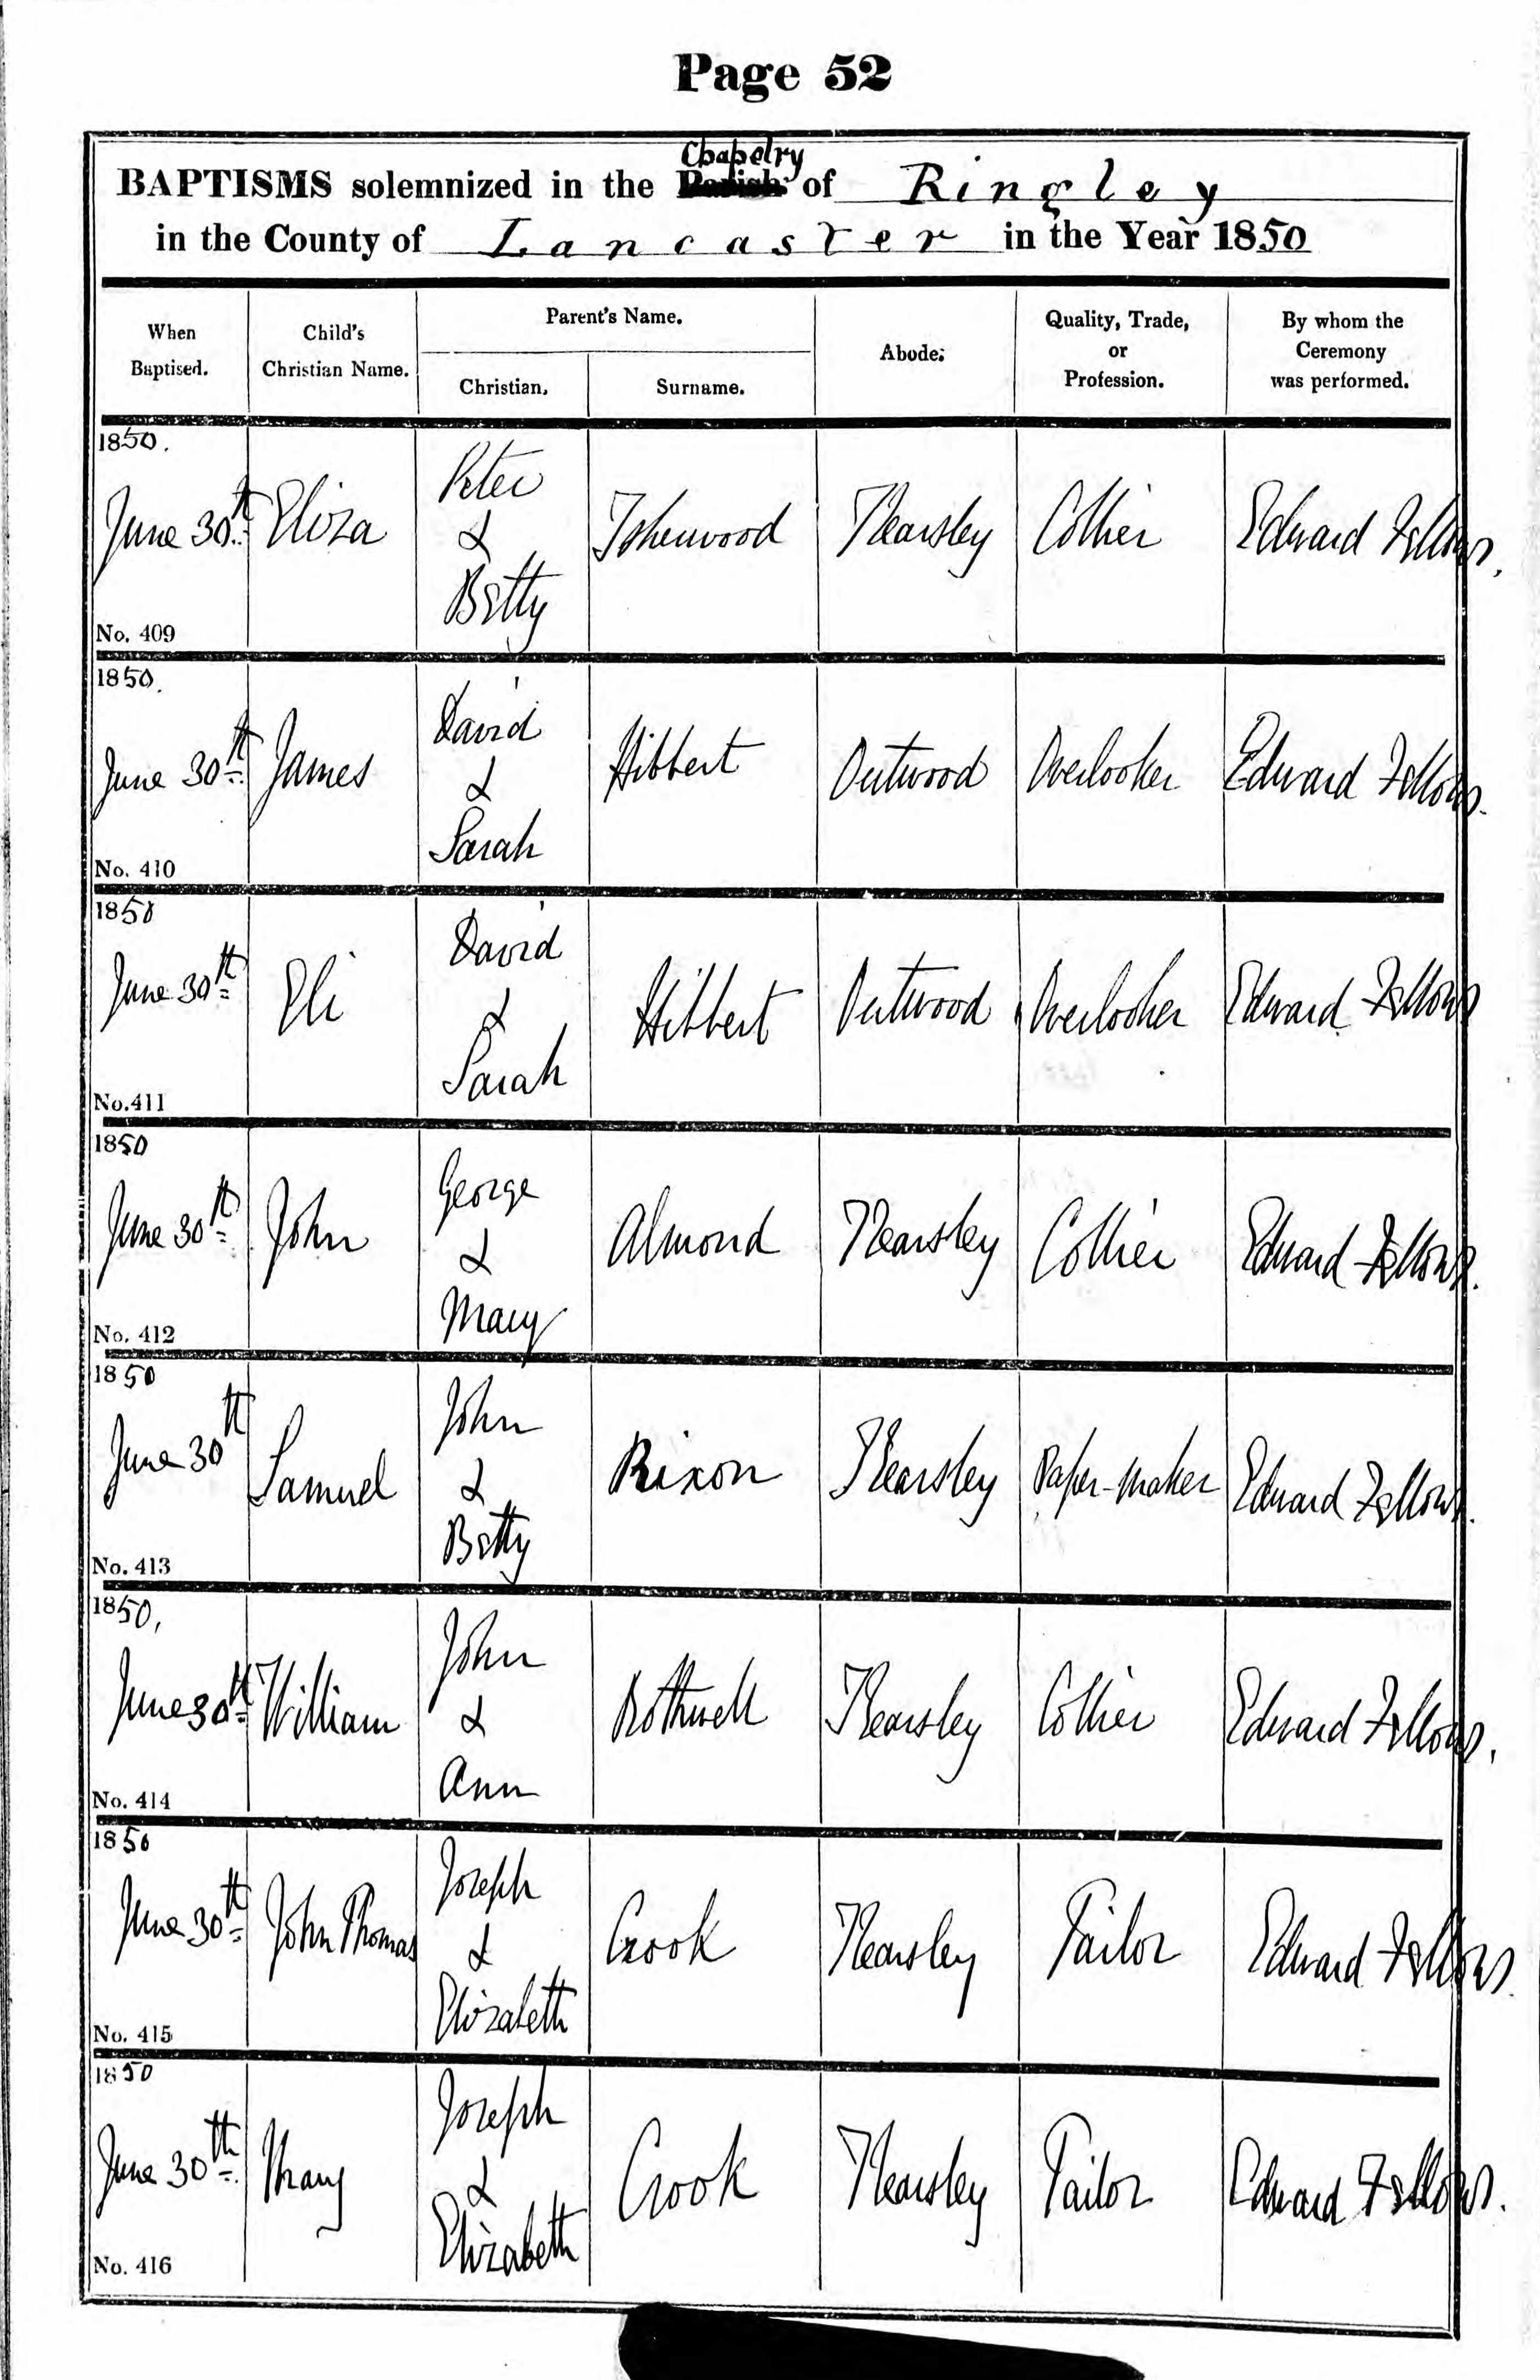 Page 52
Chapelry
BAPTISMS solemnized in the Parish of Ringley
in the County of Lancaster in the Year 1850
When Baptised.
Child's Christian Name.
Parent's Name.
Christian.
Surname.
Abode.
Quality, Trade, or Profession.
By whom the Ceremony was performed.
1850.
June 30th
No. 409
Eliza
Peter
&
Betty
Isherwood
Kearsley
Collier
Edward Fellows.
1850.
June 30th
No. 410
James
David
&
Sarah
Hibbert
Outwood
Overlooker
Edward Fellows.
1850
June 30th
No. 411
Eli
David
&
Sarah
Hibbert
Outwood
Overlooker
Edward Fellows
1850
June 30th
No. 412
John
George
&
Mary
Almond
Kearsley
Collier
Edward Fellows.
1850
June 30th
No. 413
Samuel
John
&
Betty
Rixon
Kearsley
Paper-maker
Edward Fellows.
1850,
June 30th
No. 414
William
John
&
Ann
Rothwell
Kearsley
Collier
Edward Fellows.
1850
June 30th
No. 415
John Thomas
Joseph
&
Elizabeth
Crook
Kearsley
Tailor
Edward Fellows.
1850
June 30th
No. 416
Mary
Joseph
&
Elizabeth
Crook
Kearsley
Tailor
Edward Fellows.